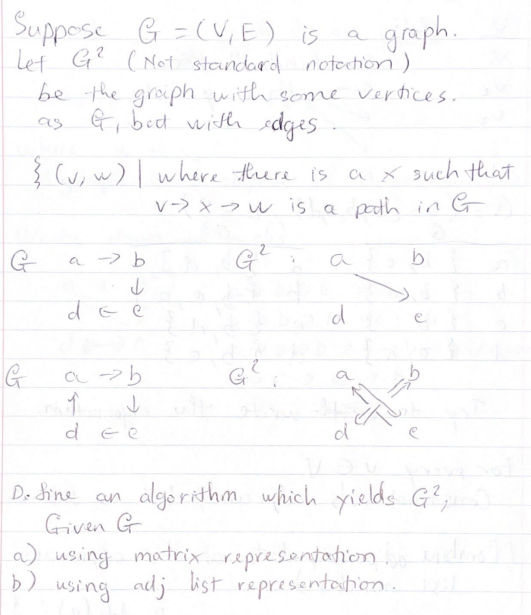 Suppose G = (V, E) is a graph.
Let G² (Not standard notation)
be the graph with some vertices.
as G, but with edges.
{ (v, w) | where there is a x such that
v → x → w is a path in G
G a → b G² : a b
↓
d ← e d e
G a → b G² : a b
↑ ↓
d ← e d e
Define an algorithm which yields G²,
Given G
a) using matrix representation.
b) using adj list representation.